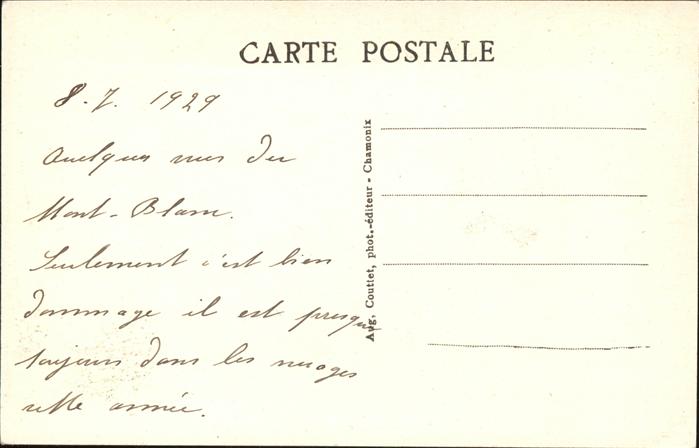 CARTE POSTALE
8.7. 1929
Quelques vues du
Mont-Blanc.
Seulement c'est bien
dommage il est presque
toujours dans les nuages
cette année.
Aug. Couttet, phot.-éditeur - Chamonix